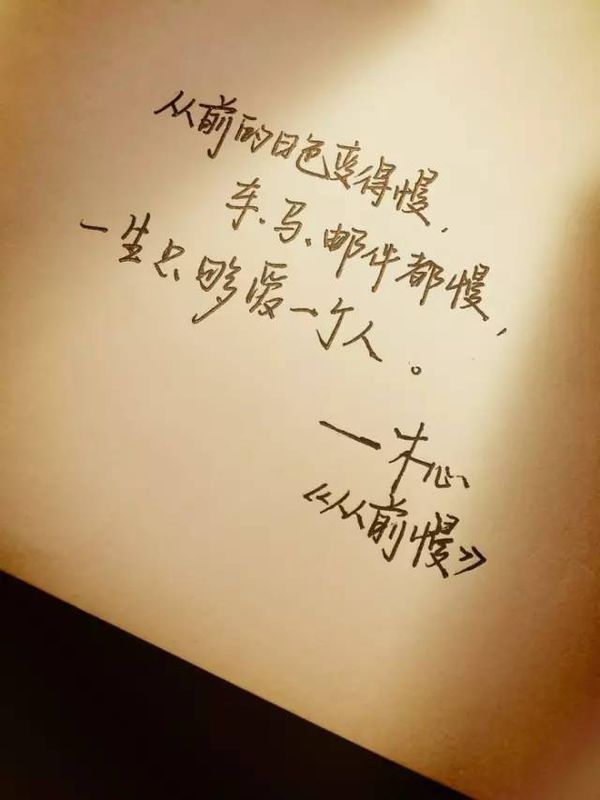 从前的日色变得慢,
车、马、邮件都慢,
一生只够爱一个人。
—木心
《从前慢》